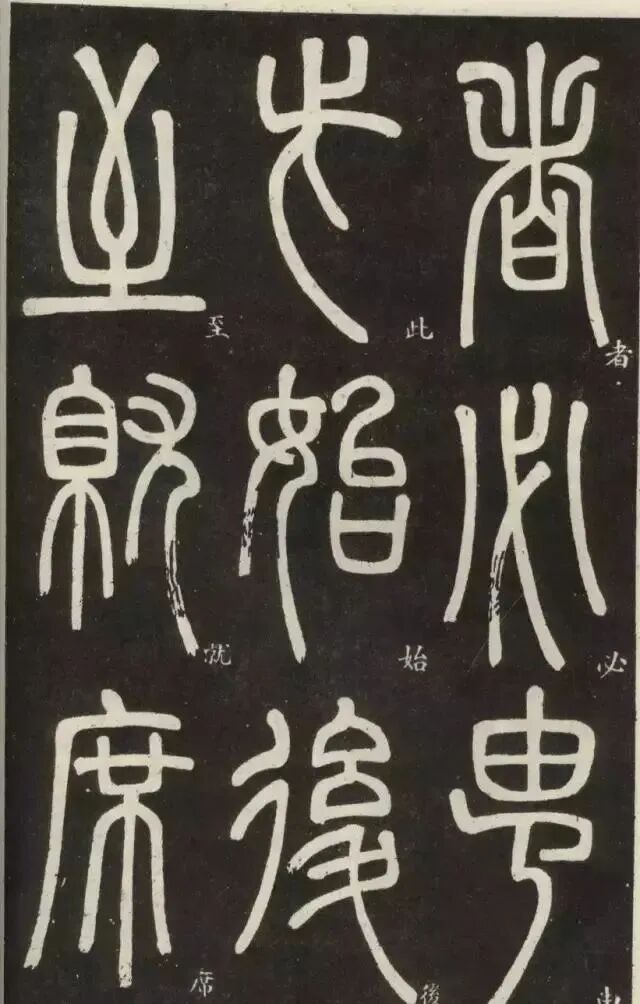 者必由
此始後
至就席